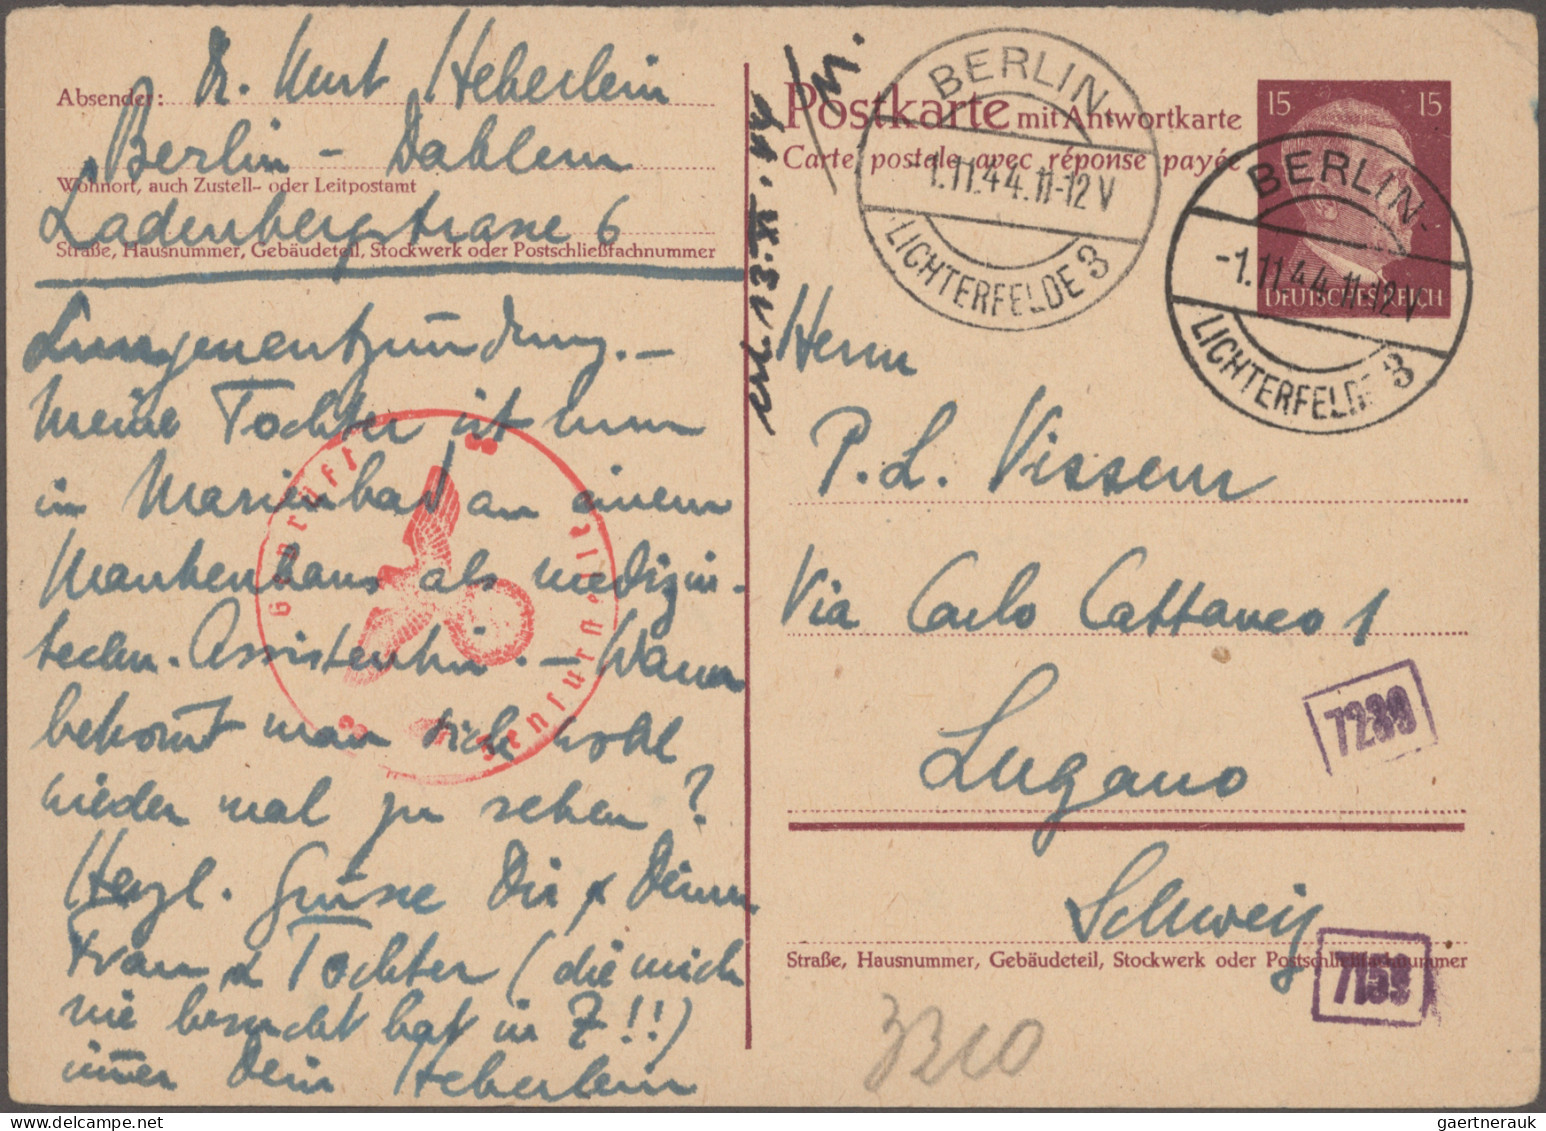 Absender: Dr. Kurt Heberlein
Berlin - Dahlem
Wohnort, auch Zustell- oder Leitpostamt
Ladenbergstrasse 6
Straße, Hausnummer, Gebäudeteil, Stockwerk oder Postschließfachnummer
Lungenentzündung. –
Meine Tochter ist nun
in Marienbad an einem
Krankenhaus als medizin-
techn. Assistentin. – Wann
bekommt man Dich wohl
wieder mal zu sehen?
Herzl. Grüsse Dir & Deiner
Frau & Tochter (die mich
nie besucht hat in Z!!)
immer Dein Heberlein
Geprüft
Zensurstelle
erh. 13. XI. 44
Postkarte mit Antwortkarte
Carte postale avec réponse payée
BERLIN-
-1.11.44.11-12V
LICHTERFELDE 3
15 15
DEUTSCHES REICH
BERLIN-
-1.11.44.11-12V
LICHTERFELDE 3
Herrn
P. L. Vissem
Via Carlo Cattaneo 1
Lugano
7289
Schweiz
Straße, Hausnummer, Gebäudeteil, Stockwerk oder Postschließfachnummer
7159
gaertnerauk @ delcampe.net